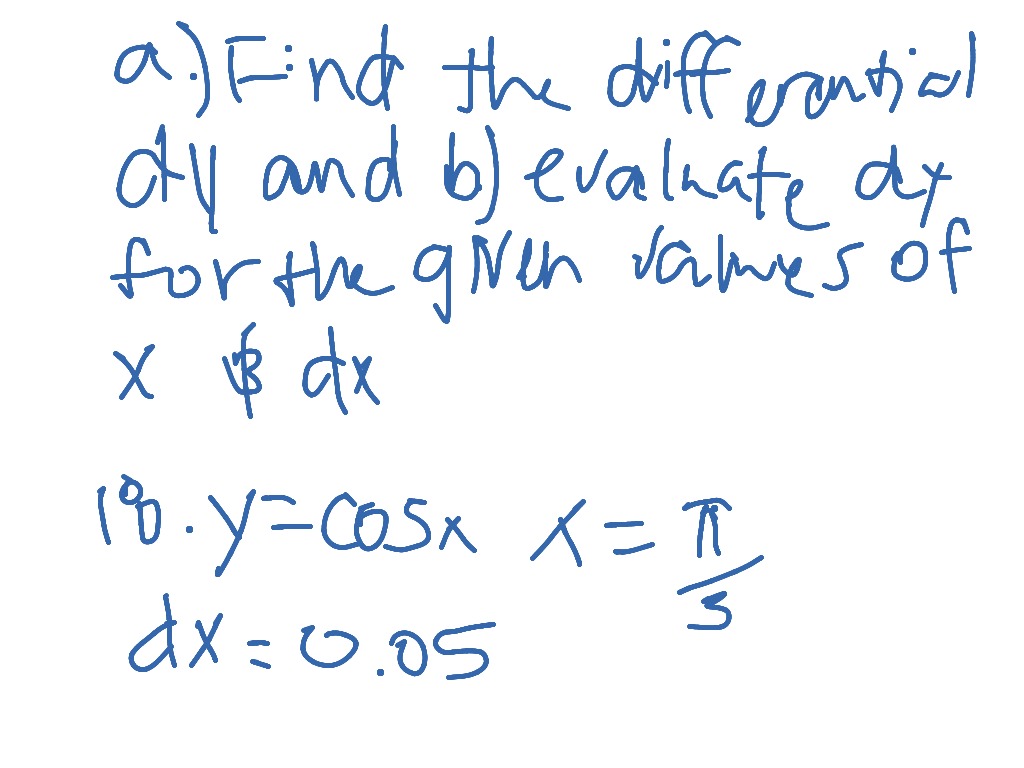 a.) Find the differential
dy and b) evaluate dy
for the given values of
x & dx
18. y = cosx x = π/3
dx = 0.05